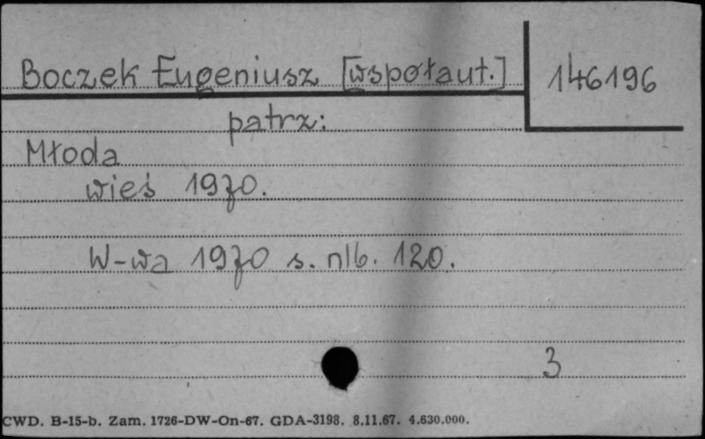 Boczek Eugeniusz [współaut.] 146196
patrz:
Młoda
wieś 1970.
W-wa 1970 s. nlb. 120.
3
CWD. B-15-b. Zam. 1726-DW-On-67. GDA-3198. 8.11.67. 4.630.000.